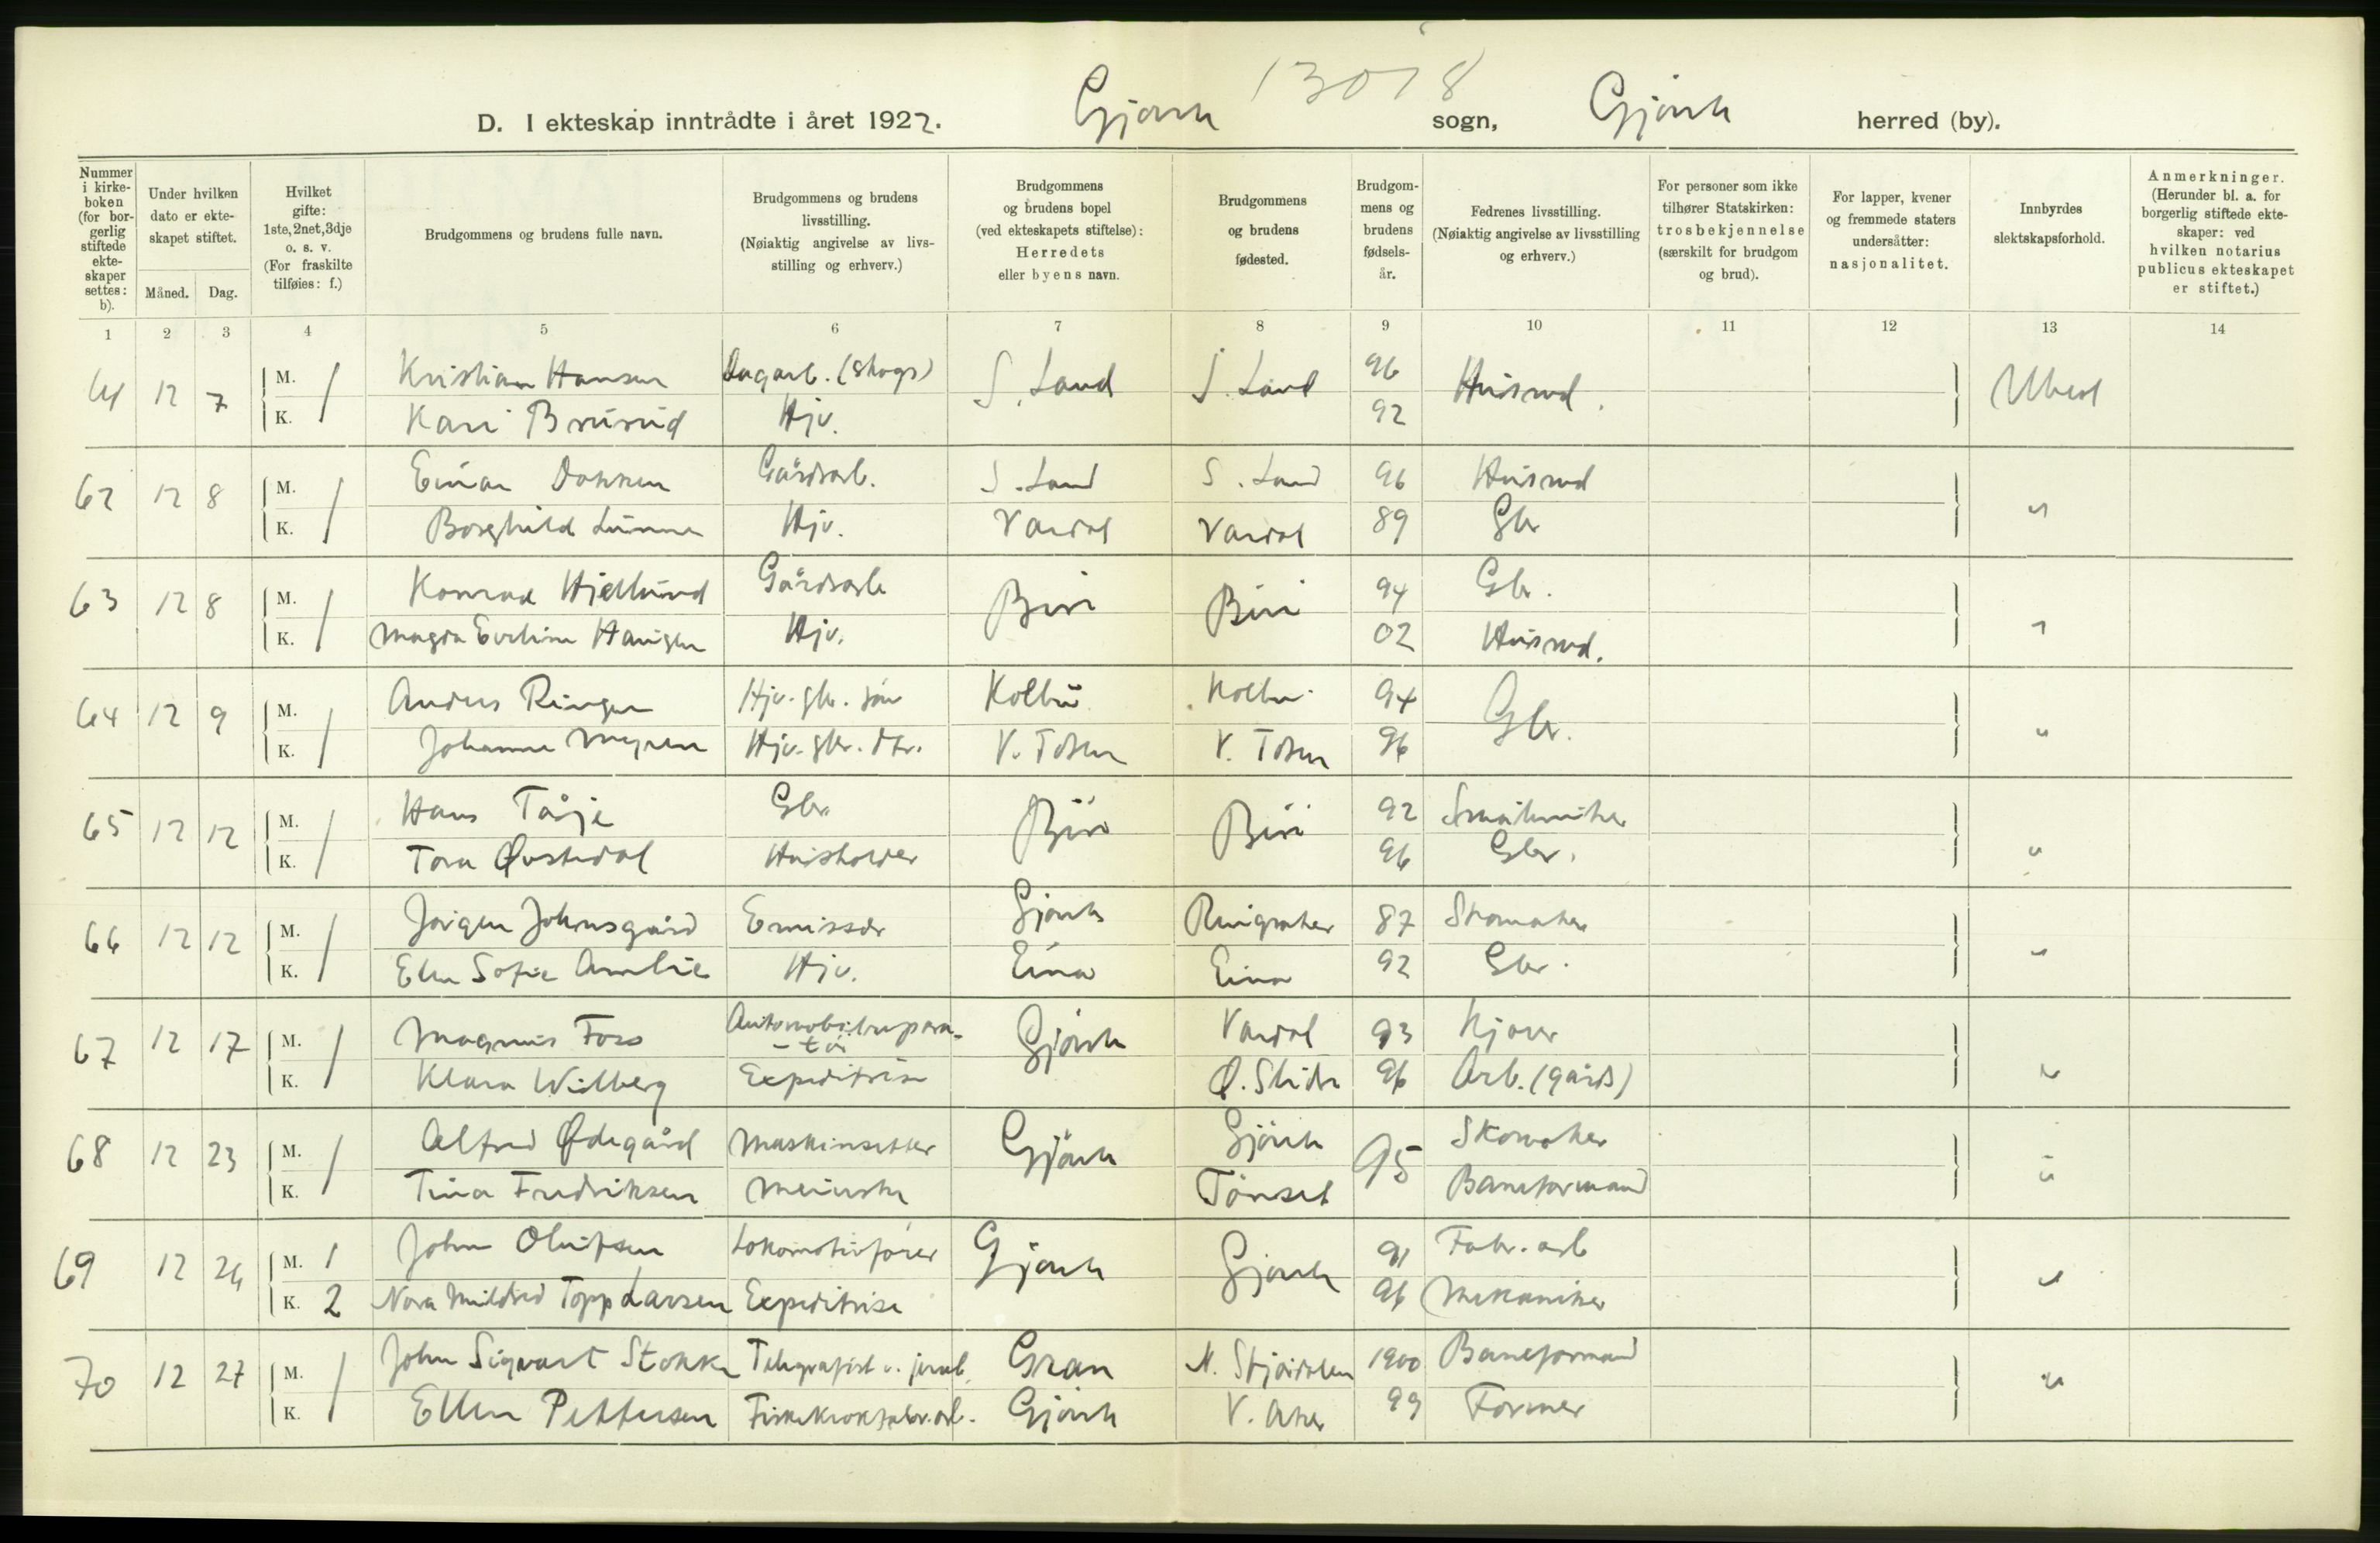 13018
D. I ekteskap inntrådte i året 1922. Gjøvik sogn, Gjøvik herred (by).
Nummer i kirkeboken (for borgerlig stiftede ekteskaper settes: b).
Under hvilken dato er ekteskapet stiftet.
Måned. Dag.
Hvilket gifte: 1ste, 2net, 3dje o. s. v. (For fraskilte tilføies: f.)
Brudgommens og brudens fulle navn.
Brudgommens og brudens livsstilling. (Nøiaktig angivelse av livsstilling og erhverv.)
Brudgommens og brudens bopel (ved ekteskapets stiftelse): Herredets eller byens navn.
Brudgommens og brudens fødested.
Brudgommens og brudens fødselsår.
Fedrenes livsstilling. (Nøiaktig angivelse av livsstilling og erhverv.)
For personer som ikke tilhører Statskirken: trosbekjennelse (særskilt for brudgom og brud).
For lapper, kvener og fremmede staters undersåtter: nasjonalitet.
Innbyrdes slektskapsforhold.
Anmerkninger. (Herunder bl. a. for borgerlig stiftede ekteskaper: ved hvilken notarius publicus ekteskapet er stiftet.)
1 2 3 4 5 6 7 8 9 10 11 12 13 14
61 12 7 M. 1 Kristian Hansen Dagarb. (skogs) S. Land S. Land 96 Husmd. Ubesl
K. Kari Brusrud Hjv. 92
62 12 8 M. 1 Einar Dokken Gårdsarb. S. Land S. Land 96 Husmd "
K. Borghild Lunne Hjv. Vardal Vardal 89 Gbr
63 12 8 M. 1 Konrad Hjellund Gårdsarb Biri Biri 94 Gbr. "
K. Magda Eveline Haugen Hjv. 02 Husmd.
64 12 9 M. 1 Anders Ringen Hjv. gbr. søn Kolbu Kolbu 94 Gbr. "
K. Johanne Myren Hjv. gbr. dtr. V. Toten V. Toten 96
65 12 12 M. 1 Hans Tåje Gbr. Biri Biri 92 "
K. Tora Øvstedal Husholder 96 Gbr.
66 12 12 M. 1 Jørgen Johnsgård Emissær Gjøvik Ringsaker 87 Skomaker "
K. Elen Sofie Amlie Hjv. Eina Eina 92 Gbr.
67 12 17 M. 1 Magnus Foss Automobilrepara-
-tør Gjøvik Vardal 93 Kjører "
K. Klara Wilberg Expeditrise Ø. Slidre 96 Arb. (gårds)
68 12 23 M. 1 Alfred Ødegård Maskinsetter Gjøvik Gjøvik 95 Skomaker "
K. Tina Fredriksen Meierske Tønset Baneformand
69 12 26 M. 1 John Olufsen Lokomotivfører Gjøvik Gjøvik 91 Fabr. arb "
K. 2 Nora Mildred Topp Larsen Expeditrise 96 Mekaniker
70 12 27 M. 1 John Sigvart Stokke Telegrafist v. jernb. Gran N. Stjørdalen 1900 Baneformand "
K. Ellen Pettersen Fiskekrokfabr.arb. Gjøvik V. Aker 99 Former